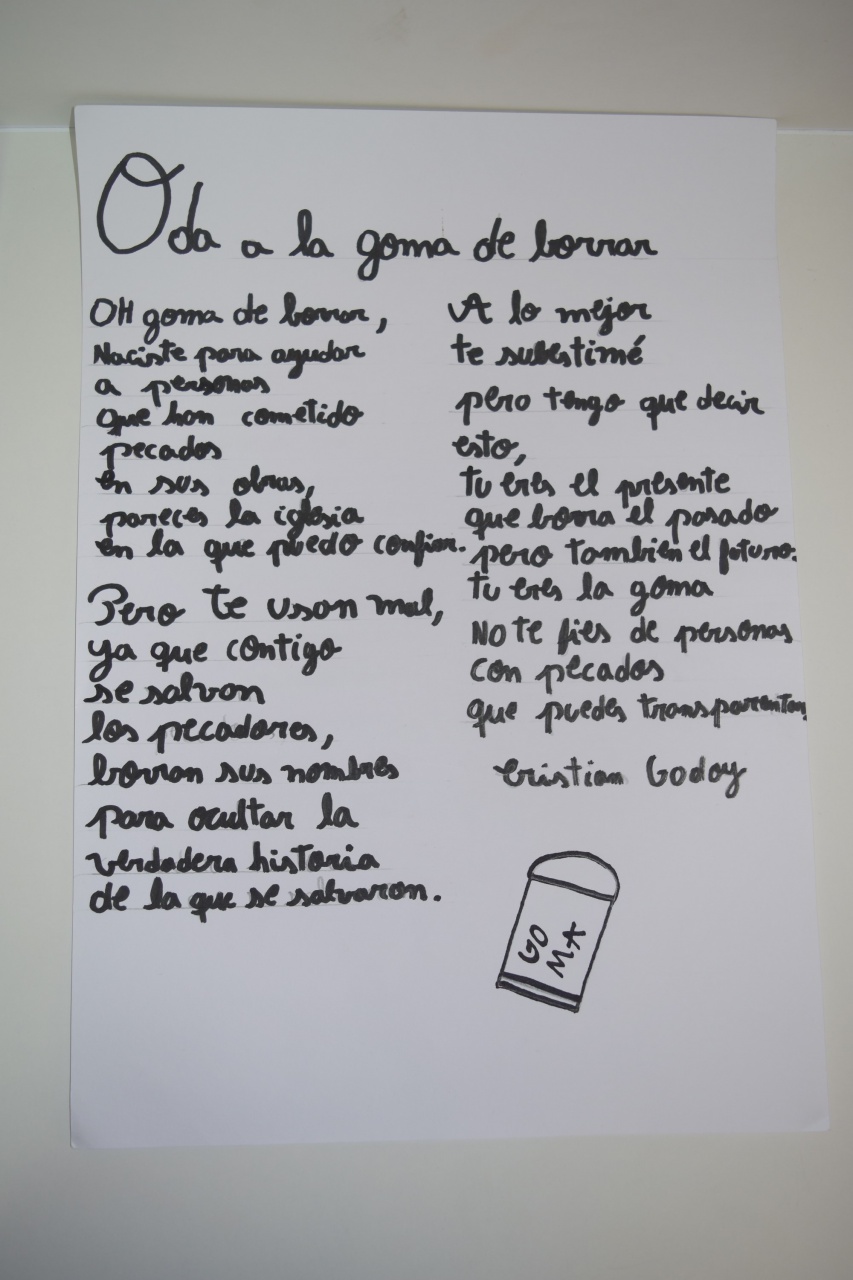 Oda a la goma de borrar
OH goma de borrar,
Naciste para ayudar
a personas
que han cometido
pecados
en sus obras,
pareces la iglesia
en la que puedo confiar.
Pero te usan mal,
ya que contigo
se salvan
los pecadores,
borran sus nombres
para ocultar la
verdadera historia
de la que se salvaron.
A lo mejor
te subestimé
pero tengo que decir
esto,
tu eres el presente
que borra el pasado
pero también el futuro.
tu eres la goma
NO te fies de personas
con pecados
que puedes transparentar
Cristian Godoy
GO
MA